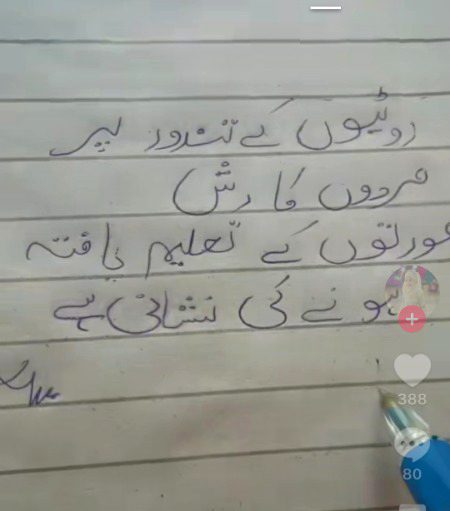 روٹیوں کے تندور پر
مردوں کا رش
عورتوں کے تعلیم یافتہ
ہونے کی نشانی ہے
388
80